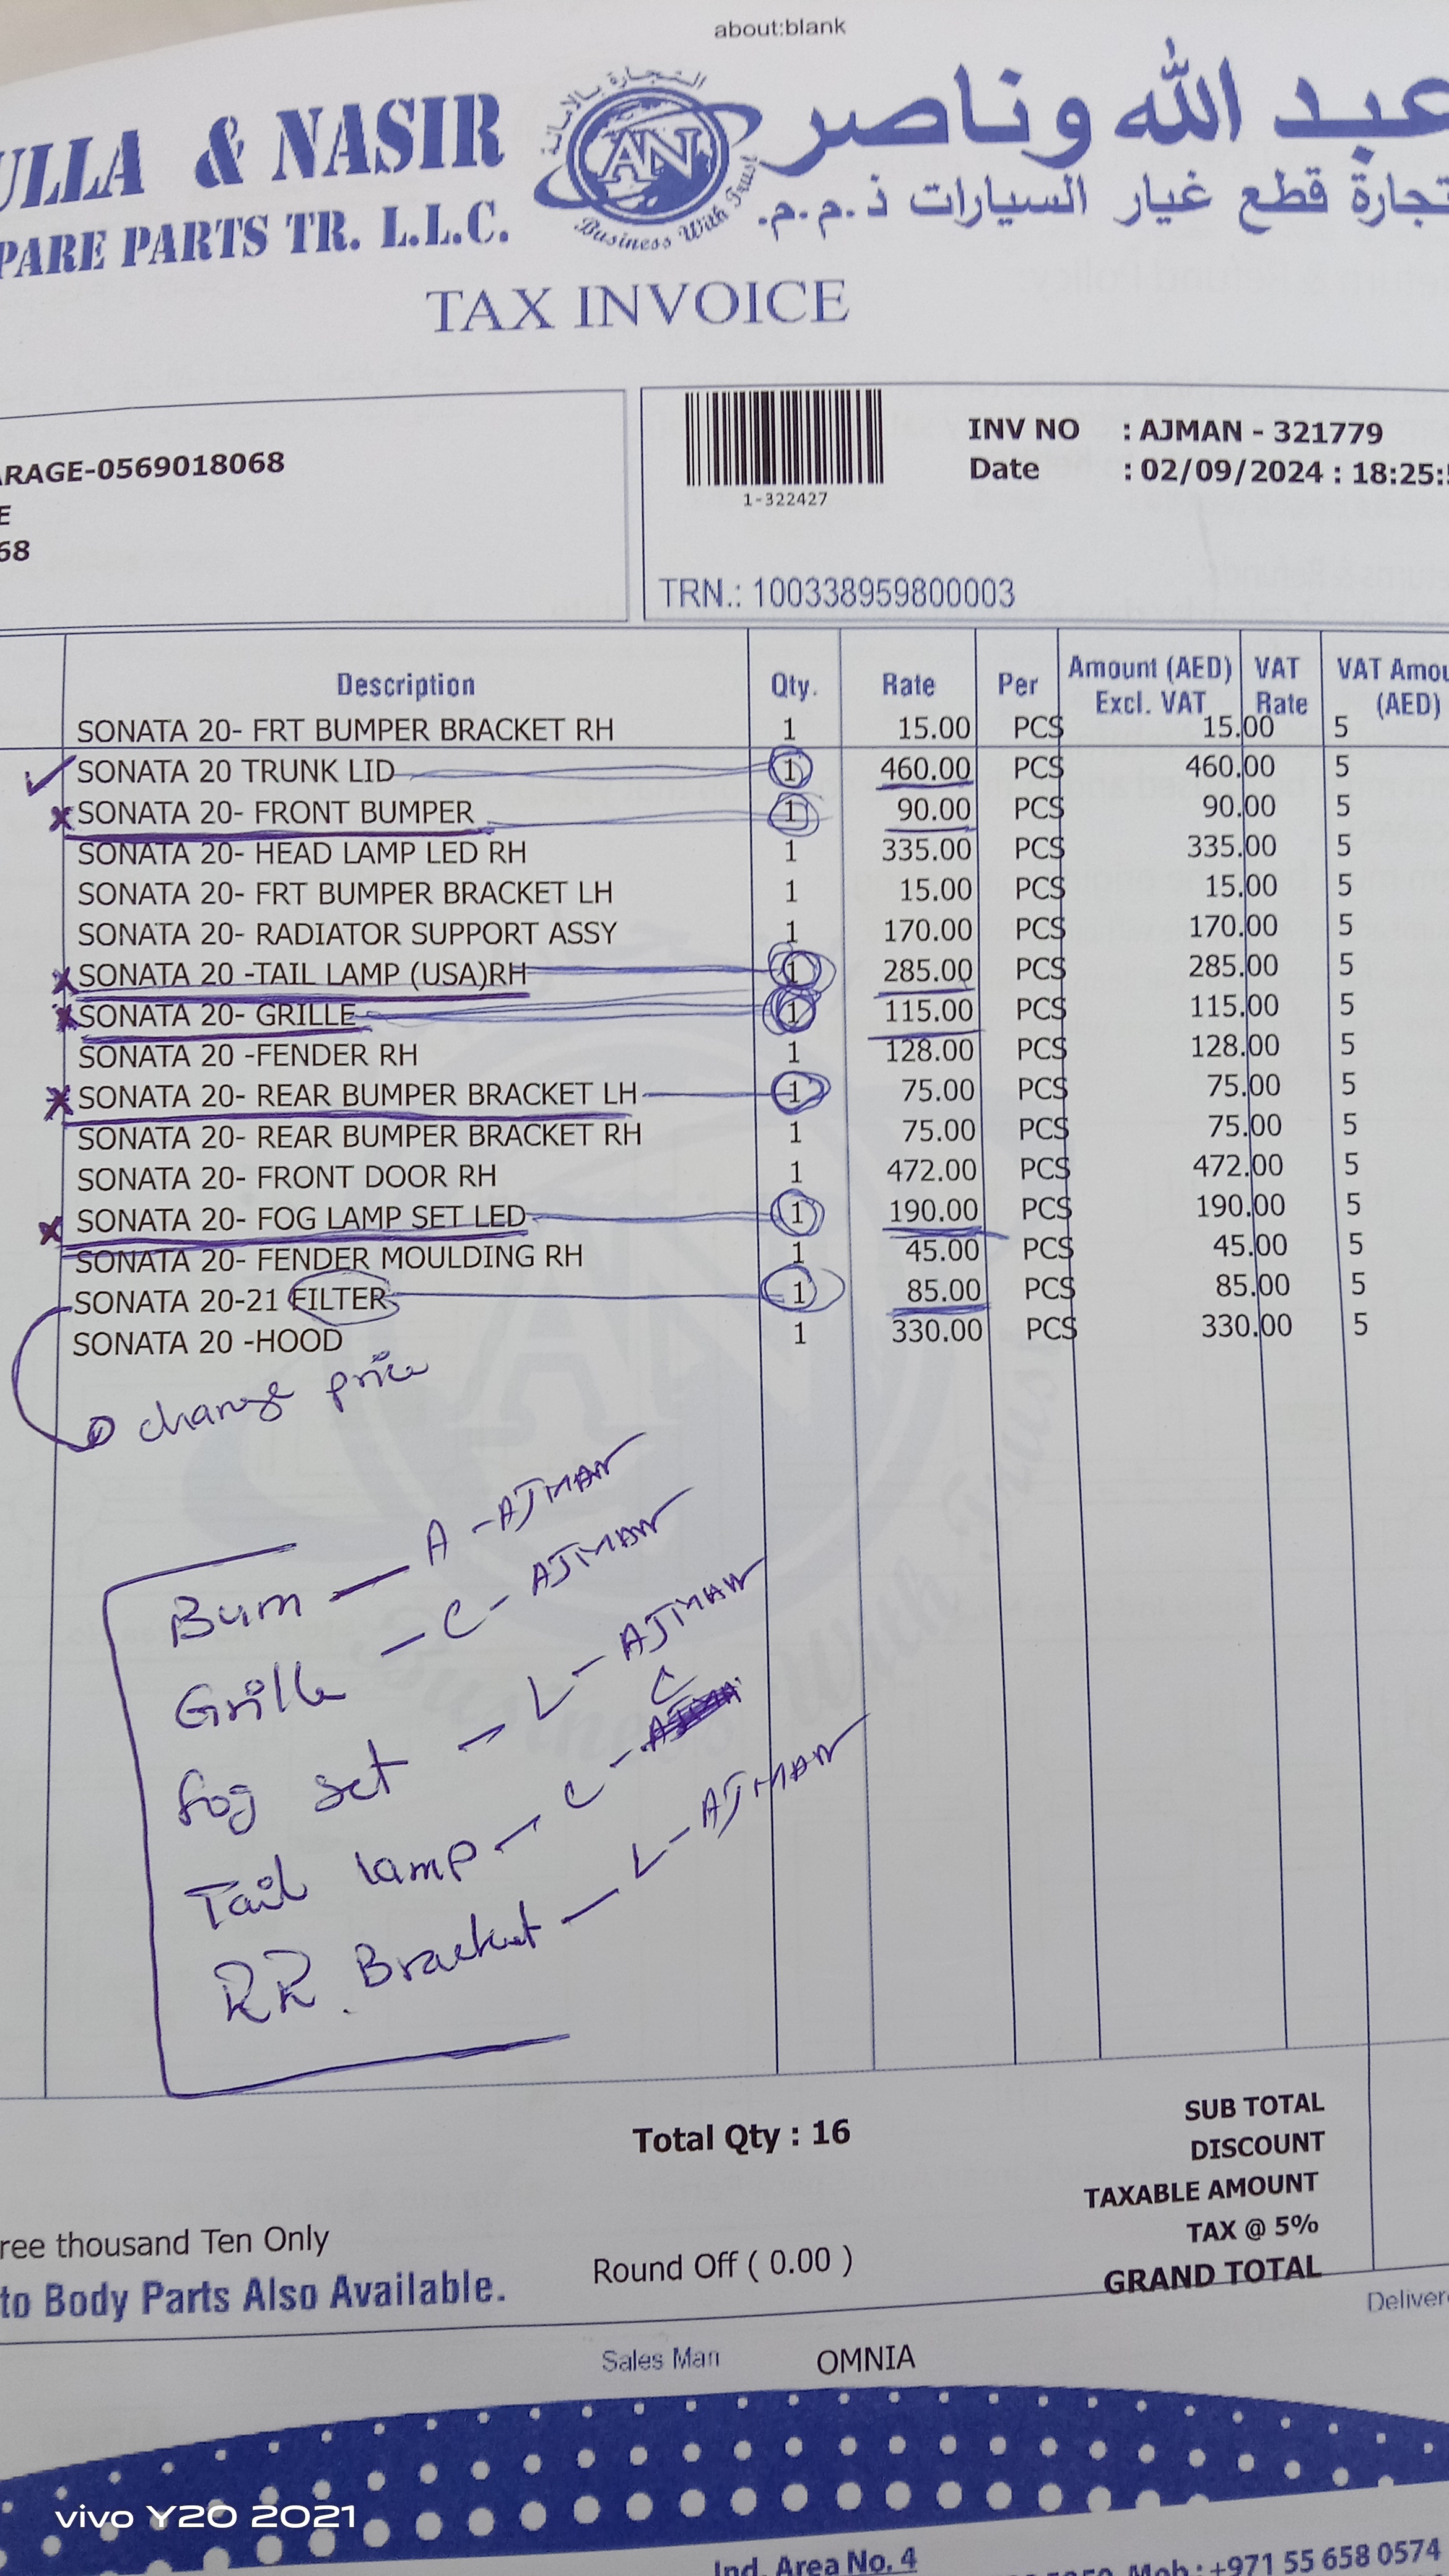 about:blank
ULLA & NASIR
PARE PARTS TR. L.L.C.
التجارة بالامانة
AN
Business With Trust
عبد الله وناصر
تجارة قطع غيار السيارات ذ.م.م.
TAX INVOICE
ARAGE-0569018068
E
68
1-322427
INV NO : AJMAN - 321779
Date : 02/09/2024 : 18:25:5
TRN.: 100338959800003
Description Qty. Rate Per Amount (AED) Excl. VAT VAT Rate VAT Amou (AED)
SONATA 20- FRT BUMPER BRACKET RH 1 15.00 PCS 15.00 5
SONATA 20 TRUNK LID 1 460.00 PCS 460.00 5
SONATA 20- FRONT BUMPER 1 90.00 PCS 90.00 5
SONATA 20- HEAD LAMP LED RH 1 335.00 PCS 335.00 5
SONATA 20- FRT BUMPER BRACKET LH 1 15.00 PCS 15.00 5
SONATA 20- RADIATOR SUPPORT ASSY 1 170.00 PCS 170.00 5
SONATA 20 -TAIL LAMP (USA)RH 1 285.00 PCS 285.00 5
SONATA 20- GRILLE 1 115.00 PCS 115.00 5
SONATA 20 -FENDER RH 1 128.00 PCS 128.00 5
SONATA 20- REAR BUMPER BRACKET LH 1 75.00 PCS 75.00 5
SONATA 20- REAR BUMPER BRACKET RH 1 75.00 PCS 75.00 5
SONATA 20- FRONT DOOR RH 1 472.00 PCS 472.00 5
SONATA 20- FOG LAMP SET LED 1 190.00 PCS 190.00 5
SONATA 20- FENDER MOULDING RH 1 45.00 PCS 45.00 5
SONATA 20-21 FILTER 1 85.00 PCS 85.00 5
SONATA 20 -HOOD 1 330.00 PCS 330.00 5
change price
Bum — A - AJMAN
Grille — C - AJMAN
fog set — L - AJMAN
Tail lamp — C - C
RR. Bracket — L - AJMAN
Total Qty : 16
SUB TOTAL
DISCOUNT
TAXABLE AMOUNT
TAX @ 5%
GRAND TOTAL
ree thousand Ten Only
Round Off ( 0.00 )
to Body Parts Also Available.
Deliver
Sales Man OMNIA
vivo Y20 2021
Ind. Area No. 4
Mob.: +971 55 658 0574